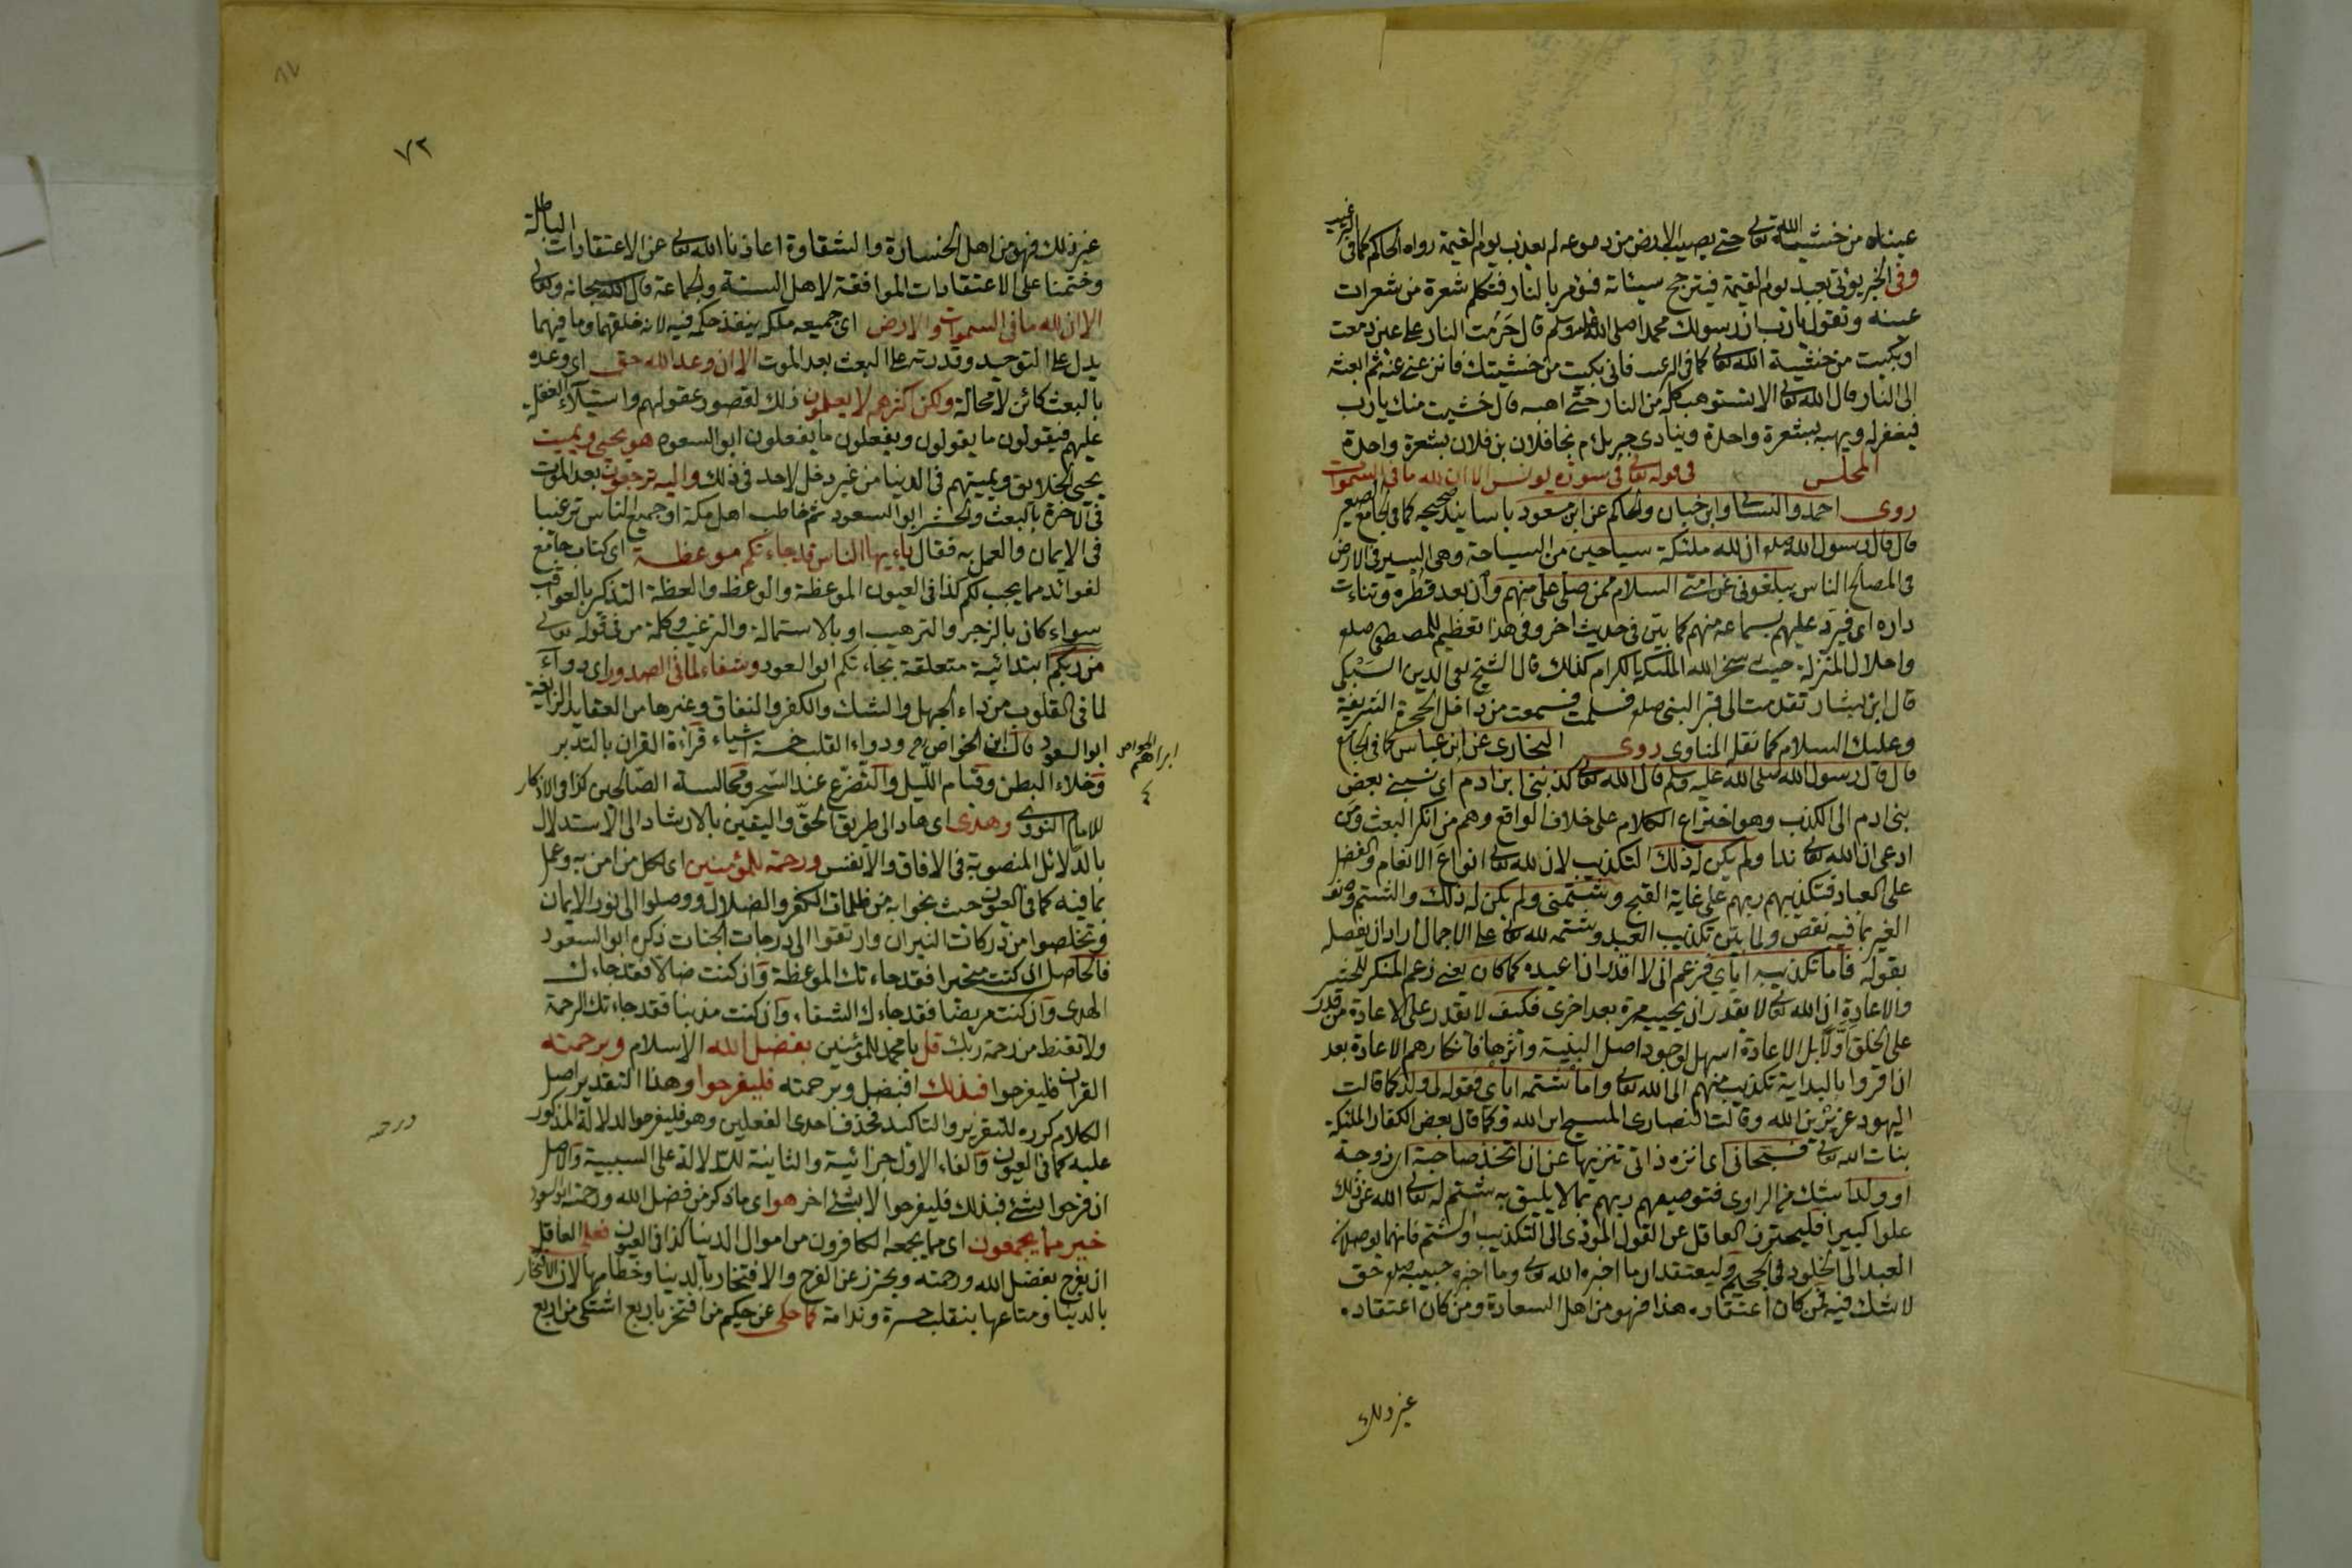 عيناه من خشية الله تعالى حتى يصيب الارض من دموعه لم يعذب يوم القيمة رواه الحاكم كما فى الترغيب
وفى الخبر يؤتى بعبد يوم القيمة فيترجح سيئاته فيؤمر بالنار فتكلم شعرة من شعرات
عينه وتقول يا رب ان رسولك محمدا صلى الله عليه وسلم قال حرمت النار على عين دمعت
او بكيت من خشية الله تعالى كما فى الرعب فانى بكيت من خشيتك فانزعنى عنه ثم ابعثه
الى النار قال الله تعالى الا تستوهب كله من النار حتى اهبه قال خشيت منك يا رب
فيغفر له ويهبه بشعرة واحدة وينادى جبريل م نجا فلان بن فلان بشعرة واحدة
المجلس فى قوله تعالى فى سورة يونس الا ان لله ما فى السموات
روى احمد والنسائى وابن حبان والحاكم عن ابن مسعود باسانيد صحيحه كما فى الجامع الصغير
قال قال رسول الله صلعم ان لله ملئكة سياحين من السياحة وهى السير فى الارض
فى المصالح الناس يبلغونى عن امتى السلام ممن صلى على منهم وان بعد قطره وتناءت
داره اى فيرد عليهم بسماعه منهم كما بين فى حديث اخر وفى هذا تعظيم للمصطفى صلعم
واجلال المنزلة حيث سخر الله الملئكة الكرام كذلك قال الشيخ تقى الدين السبكى
قال ابن بشار تقدمت الى قبر النبى صلعم فسلمت فسمعت من داخل الحجرة الشريفة
وعليك السلام كما نقل المناوى روى البخارى عن ابن عباس كما فى الجامع
قال قال رسول الله صلى الله عليه وسلم قال الله تعالى كذبنى ابن ادم اى نسبنى بعض
بنى ادم الى الكذب وهو اختراع الكلام على خلاف الواقع وهم من انكر البعث ومن
ادعى ان الله تعالى ندا ولم يكن له ذلك التكذيب لان لله تعالى انواع الانعام والفضل
على العباد فتكذيبهم ربهم على غاية القبح وشتمنى ولم يكن له ذلك والشتم وصف
الغير بما فيه نقص ولما بين تكذيب العبد وشتمه لله تعالى على الاجمال اراد ان يفصله
بقوله فاما تكذيبه اياى فزعم انى لا اقدر ان اعيده كما كان يعنى زعم المنكر للحشر
والاعادة ان الله تعالى لا يقدر ان يحييه مرة بعد اخرى فكيف لا يقدر على الاعادة من قدر
على الخلق اولا بل الاعادة اسهل لوجود اصل البنية واثرها فانكارهم الاعادة بعد
ان اقروا بالبداية تكذيب منهم الى الله تعالى واما شتمه اياى فقوله لى ولد كما قالت
اليهود عزير ابن الله وقالت النصارى المسيح ابن الله وكما قال بعض الكفار الملئكة
بنات الله تعالى فسبحانى اى انزه ذاتى تنزيها عن ان اتخذ صاحبة اى زوجة
او ولدا شك من الراوى فتوصيفهم ربهم بما لا يليق به شتم له تعالى الله عن ذلك
علوا كبيرا فليحترز العاقل عن القول المؤدى الى التكذيب او الشتم فانهما يوصلان
العبد الى الخلود فى الجحيم وليعتقد ان ما اخبره الله تعالى وما اخبره حبيبه صلعم حق
لا شك فيه فمن كان اعتقاده هذا فهو من اهل السعادة ومن كان اعتقاده
غير ذلك
٧٢
غير ذلك فهو من اهل الخسارة والشقاوة اعاذنا الله تعالى عن الاعتقادات الباطلة
وختمنا على الاعتقادات الموافقة لاهل السنة والجماعة قال الله سبحانه وتعالى
الا ان لله ما فى السموات والارض اى جميعه ملكه ينفذ حكمه فيه لانه خلقهما وما فيهما
يدل على التوحيد وقدرته على البعث بعد الموت الا ان وعد الله حق اى وعده
بالبعث كائن لا محالة ولكن اكثرهم لا يعلمون ذلك لقصور عقولهم واستيلاء الغفلة
عليهم فيقولون ما يقولون ويفعلون ما يفعلون ابو السعود هو يحيى ويميت
يحيى الخلايق ويميتهم فى الدنيا من غير دخل لاحد فى ذلك واليه ترجعون بعد الموت
فى الاخرة بالبعث والحشر ابو السعود ثم خاطب اهل مكة او جميع الناس ترغيبا
فى الايمان والعمل به فقال يا ايها الناس قد جاءتكم موعظة اى كتاب جامع
لفوائد مما يجب لكم كذا فى العيون الموعظة والوعظ والعظة التذكر بالعواقب
سواء كان بالزجر والترهيب او بالاستمالة والترغيب وكلمة من فى قوله تعالى
من ربكم ابتدائية متعلقة بجاءتكم ابو السعود وشفاء لما فى الصدور اى دواء
لما فى القلوب من داء الجهل والشك والكفر والنفاق وغيرها من العقايد الزايغة
ابو السعود قال ابن الخواص رح ودواء القلب خمسة اشياء قراءة القران بالتدبر
ابراهيم الخواص
٤
وخلاء البطن وقيام الليل والتضرع عند السحر ومجالسة الصالحين كذا فى الاذكار
للامام النووى وهدى اى هاد الى طريق الحق واليقين بالارشاد الى الاستدلال
بالدلائل المنصوبة فى الافاق والانفس ورحمة للمؤمنين اى لكل من امن به وعمل
بما فيه كما فى العيون حيث نجوا به من ظلمات الكفر والضلال ووصلوا الى نور الايمان
وتخلصوا من دركات النيران وارتقوا الى درجات الجنات ذكره ابو السعود
فالحاصل ان كنت متحيرا فقد جاءتك الموعظة وان كنت ضالا فقد جاءك
الهدى وان كنت مريضا فقد جاءك الشفاء وان كنت مذنبا فقد جاءتك الرحمة
ولا تقنط من رحمة ربك قل يا محمد للمؤمنين بفضل الله الاسلام وبرحمته
القران فليفرحوا فبذلك اى بفضل وبرحمته فليفرحوا وهذا التقدير اصل
الكلام كرره للتقرير والتاكيد فحذف احدى الفعلين وهو فليفرحوا لدلالة المذكور
عليه كما فى العيون والفاء الاول جزائية والثانية للدلالة على السببية والاصل
ان فرحوا بشئ فبذلك فليفرحوا لا بشئ اخر هو اى ما ذكر من فضل الله ورحمته ابو السعود
خير مما يجمعون اى مما يجمعه الكافرون من اموال الدنيا كذا فى العيون فعلى العاقل
ان يفرح بفضل الله ورحمته ويحترز عن الفرح والافتخار بالدنيا وحطامها لان الافتخار
بالدنيا ومتاعها ينقلب حسرة وندامة كما حكى عن حكيم من افتخر باربع اشتكى من اربع